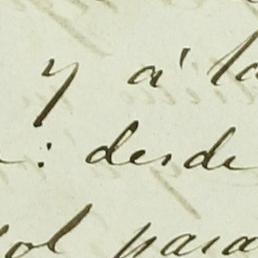 y á la
: desde
sol para